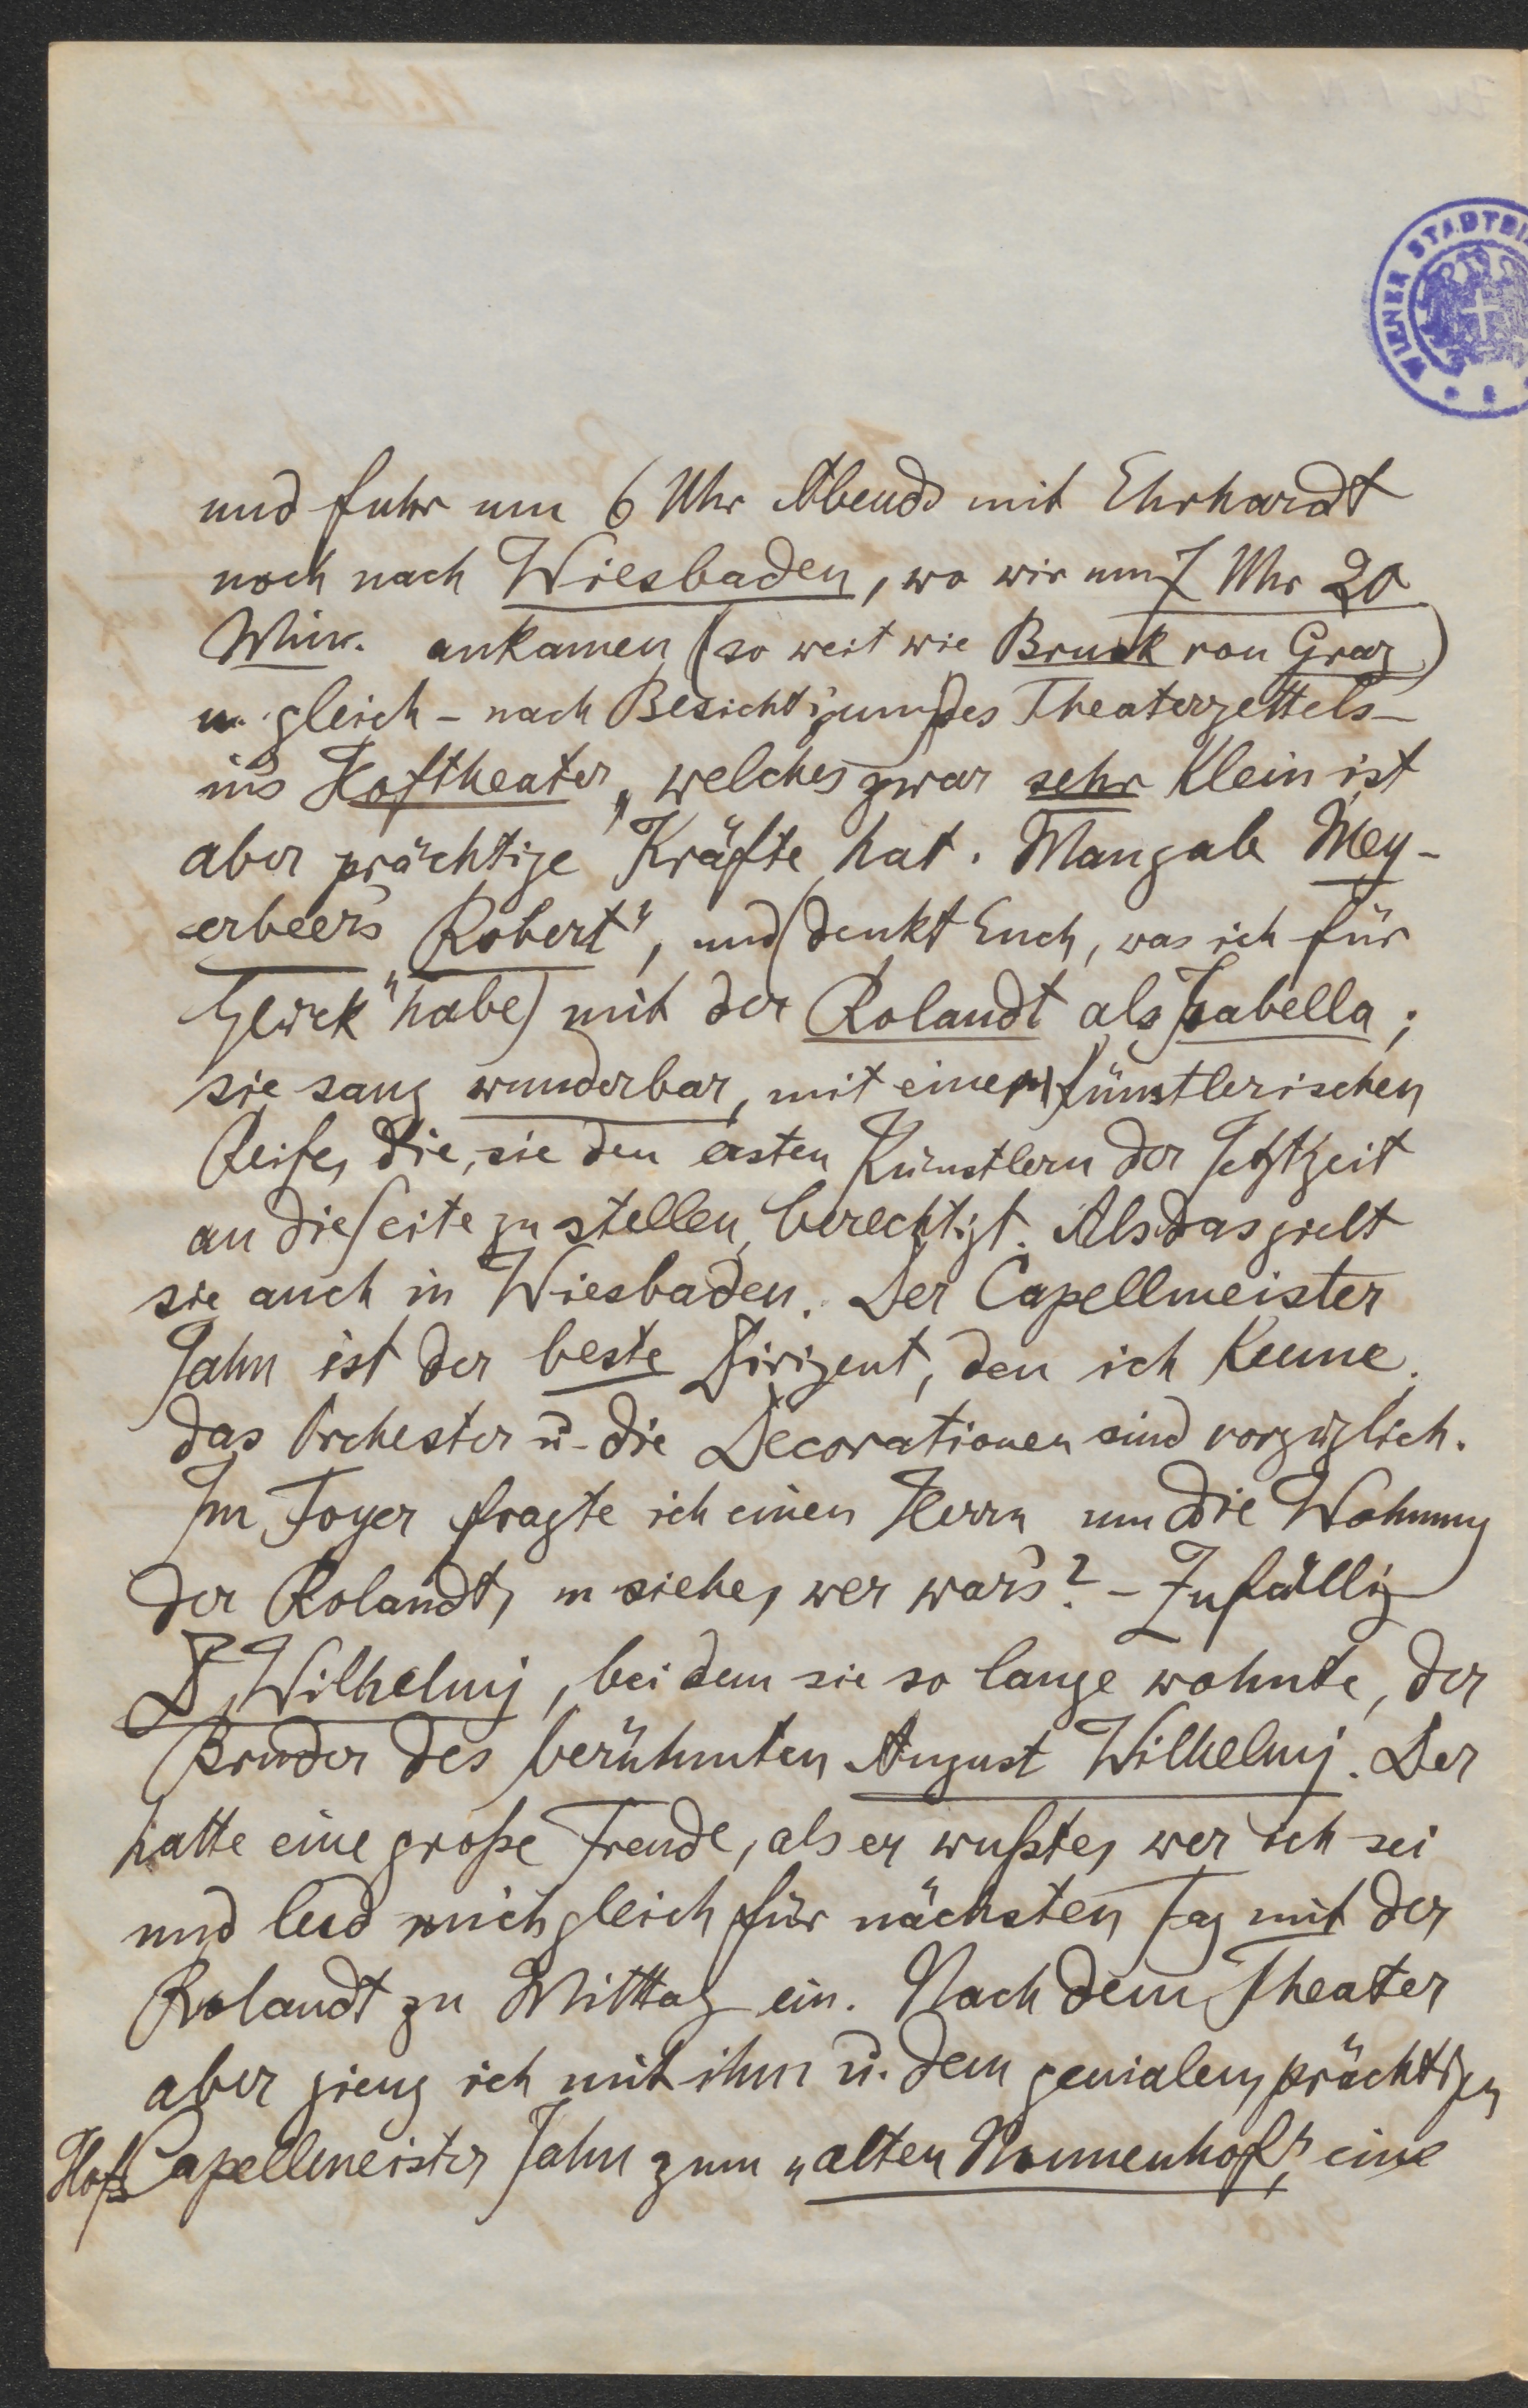 WIENER STADTBI
und fuhr um 6 Uhr Abends mit Ehrhardt
noch nach Wiesbaden, wo wir um 7 Uhr 20
Min. ankamen (so weit wie Bruck von Graz)
u. gleich – nach Besichtigung des Theaterzettels –
in's Hoftheater, welches zwar sehr klein ist
aber prächtige Kräfte hat. Man gab Mey-
erbeer's „Robert“, und (denkt Euch, was ich für
Glück habe) mit der Rolandt als Isabella;
sie sang wunderbar, mit einer künstlerischen
Reife, die, sie den ersten Künstlern der Jetztzeit
an die Seite zu stellen, berechtigt. Als das gielt
sie auch in Wiesbaden. Der Capellmeister
Jahn ist der beste Dirigent, den ich kenne.
das Orchester u. die Decorationen sind vorzüglich.
Im Foyer fragte ich einen Herrn um die Wohnung
der Rolandt, u siehe, wer war's? – Zufällig
Dr Wilhelmj, bei dem sie so lange wohnte, der
Bruder des berühmten August Wilhelmj. Der
hatte eine große Freude, als er wußte, wer ich sei
und lud mich gleich für nächsten Tag mit der
Rolandt zu Mittag ein. Nach dem Theater
aber gieng ich mit ihm u. dem genialen, prächtigen
Hof Capellmeister Jahn zum „alten Nonnenhof“, eine